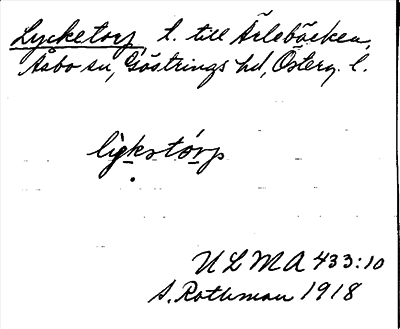 Lycketorp, t. till Ärlebäcken,
Åsbo sn, Göstrings hd, Österg. l.
lỳckstórp
ULMA 433:10
S. Rothman 1918